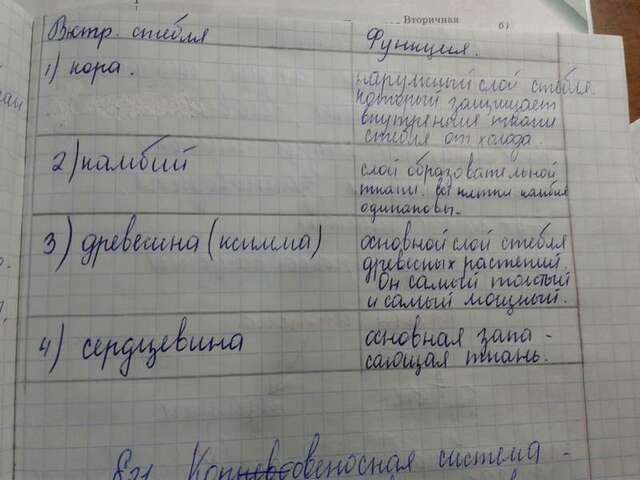 Вторичная
б)
Внтр. стебля
Функция.
1) кора.
наружный слой стебля
который защищает
внутренния ткани
стебля от холода.
2) камбий
слой образовательной
ткани. все клетки камбия
одинаковы.
3) древесина (ксилма)
основной слой стебля
древесных растений.
Он самый толстый
и самый мощный.
4) сердцевина
основная запа -
сающая ткань.
система -